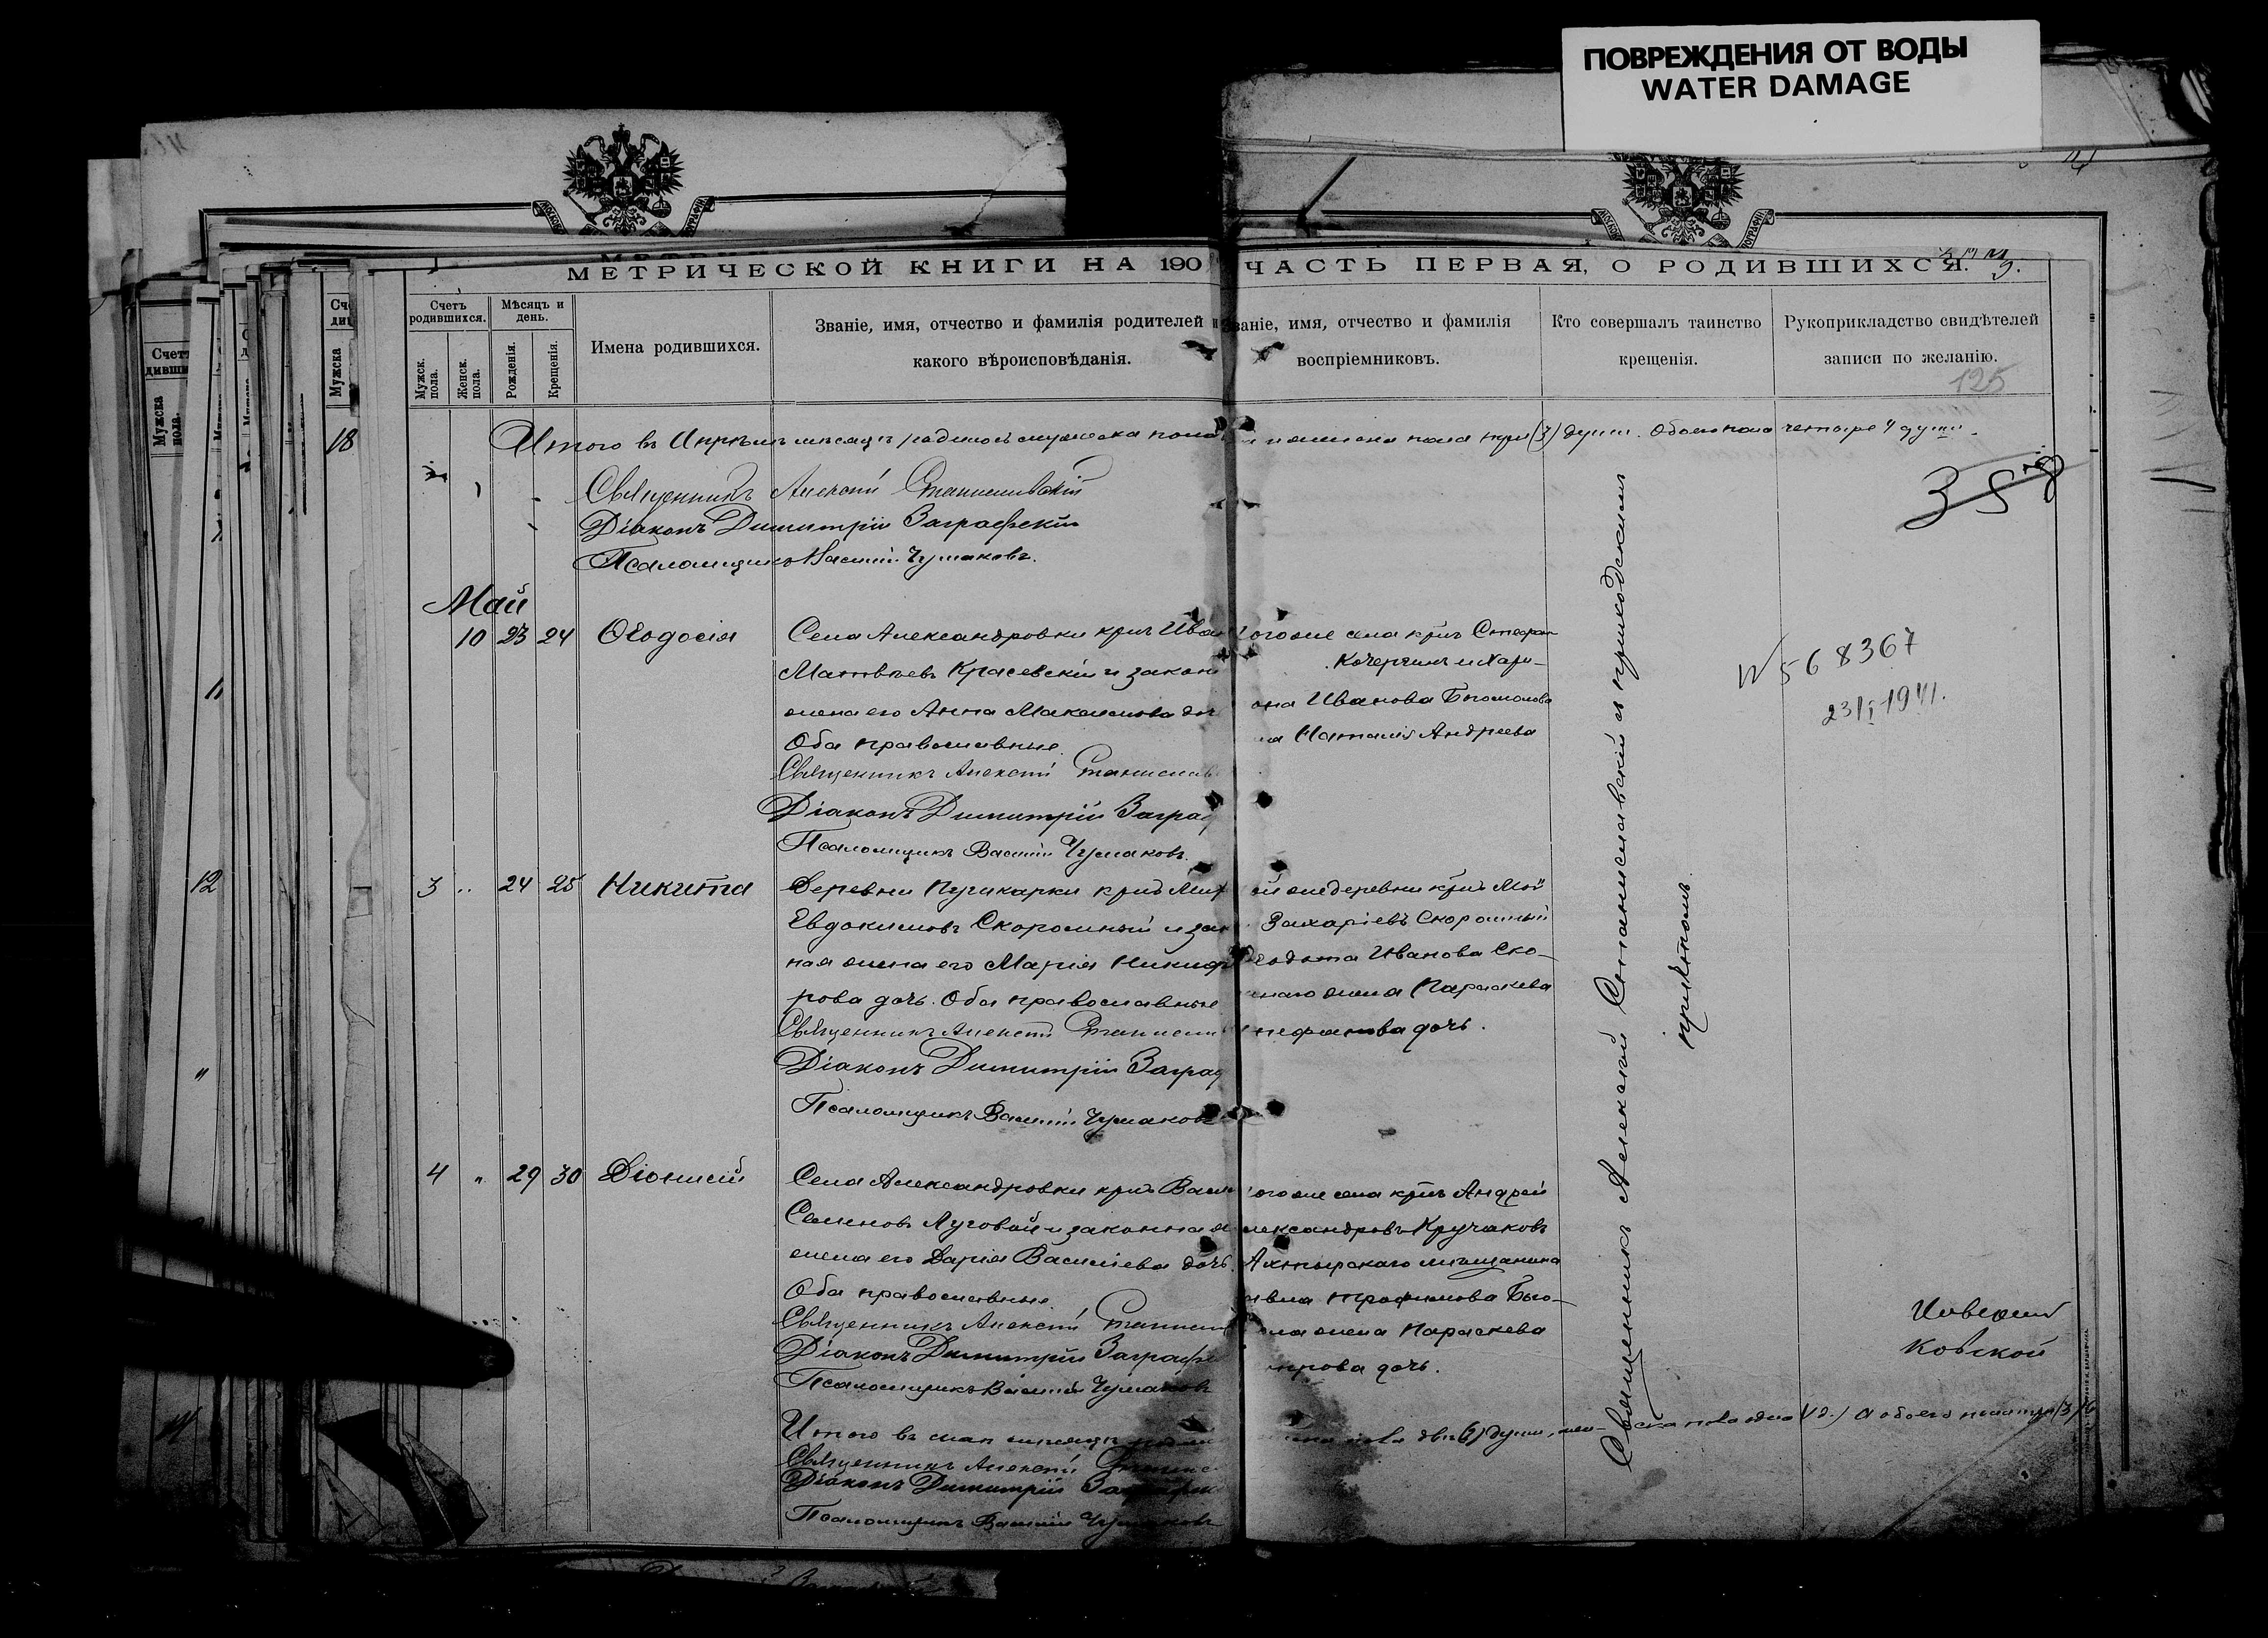 ПОВРЕЖДЕНИЯ ОТ ВОДЫ
WATER DAMAGE
МЕТРИЧЕСКОЙ КНИГИ НА 190
ЧАСТЬ ПЕРВАЯ, О РОДИВШИХСЯ.
Счетъ родившихся.
Мѣсяцъ и день.
Мужск. пола.
Женск. пола.
Рожденія.
Крещенія.
Имена родившихся.
Званіе, имя, отчество и фамилія родителей и
какого вѣроисповѣданія.
Званіе, имя, отчество и фамилія
воспріемниковъ.
Кто совершалъ таинство
крещенія.
Рукоприкладство свидѣтелей
записи по желанію.
125
18
Итого въ Апрѣлѣ мѣсяцѣ родилось мужеска пола
женска пола три (3) души. Обоего пола четыре 4 души.
Священникъ Алексѣй Станиславскій
Діаконъ Димитрій Заграфскій
Псаломщикъ Василій Чумаковъ.
358
Май
10 23 24 Ѳеодосія
Села Александровки крѣ Иван
Матвѣевъ Красевскій и закон
жена его Анна Максимова доч
Оба православные.
Священникъ Алексѣй Станислав
Діаконъ Димитрій Заграф
Псаломщикъ Василій Чумаковъ.
ого же села крѣ Стефан
Кочергинъ и Хари-
она Иванова Богомолова
на Наталія Андреева
N 568367
23/I-1941.
11
12
3 " 24 25 Никита
Деревни Пушкарки крѣ Мих
Евдокимовъ Скоромный и зак
ная жена его Марія Никиф
рова дочь. Оба православные
Священникъ Алексѣй Станислав
Діаконъ Димитрій Заграф
Псаломщикъ Василій Чумаковъ
ой же деревни крѣ Мой
Захаріевъ Скоромный
Ѳедота Иванова Ско-
мнаго жена Параскева
нефантова дочь.
4 " 29 30 Діонисій
Села Александровки крѣ Васи
Семеновъ Луговой и законная
жена его Дарія Васильева дочь.
Оба православные.
Священникъ Алексѣй Станислав
Діаконъ Димитрій Заграфс
Псаломщикъ Василій Чумаковъ
ого же села крѣ Андрей
лександровъ Кручаковъ
Ахтырскаго мѣщанина
авла Трофимова Бого-
ла жена Параскева
трова дочь.
Священникъ Алексѣй Станиславскій съ приходскимъ
причтомъ.
Итого въ маѣ мѣсяцѣ родил
пола двѣ (2) души, жен-
ска пола одна (1 д.) а обоего пола три (3)
Священникъ Алексѣй Станис
Діаконъ Димитрій Заграфск
Псаломщикъ Василій Чумаковъ